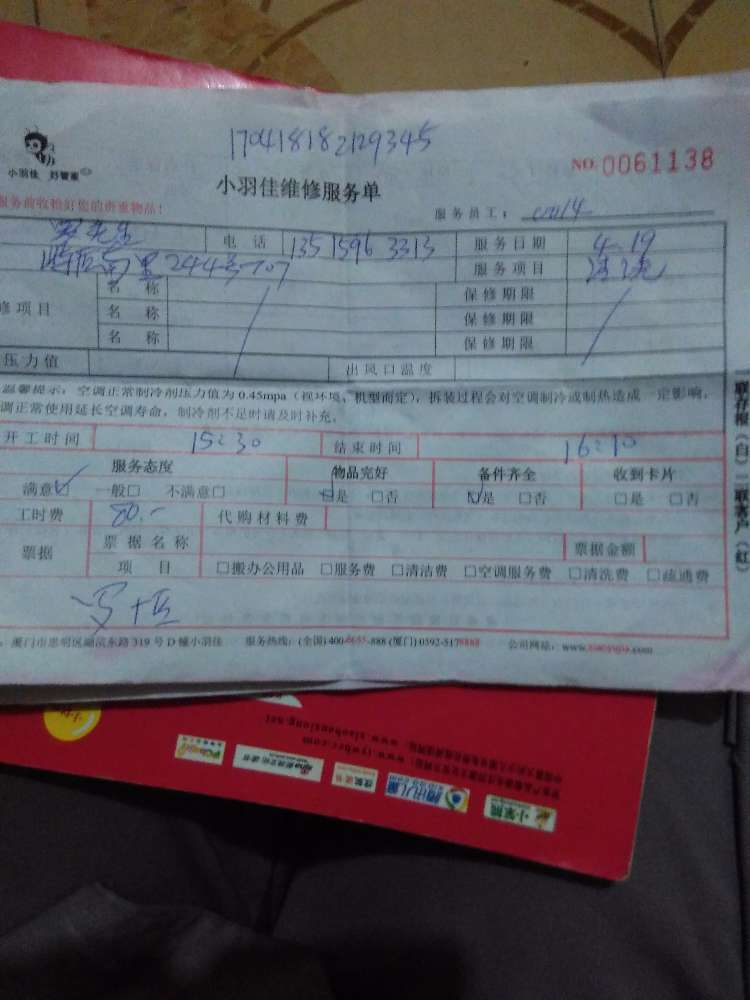 170418182129345
小羽佳 好管家
NO.0061138
小羽佳维修服务单
服务前收拾好您的贵重物品！
服务员工：
先生 电话 13515963313 服务日期 4.19
南里244号707 服务项目 清洗
名称 保修期限
修项目 名称 保修期限
名称 保修期限
压力值 出风口温度
温馨提示，空调正常制冷剂压力值为0.45mpa（视环境、机型而定），拆装过程会对空调制冷或制热造成一定影响，
调正常使用延长空调寿命，制冷剂不足时请及时补充。
开工时间 15:30 结束时间 16:10
服务态度 物品完好 备件齐全 收到卡片
满意☑ 一般□ 不满意□ ☑是 □否 ☑是 □否 □是 □否
工时费 80.- 代购材料费
票据 票据名称 票据金额
项目 □搬办公用品 □服务费 □清洁费 □空调服务费 □清洗费 □疏通费
厦门市思明区湖滨东路319号D幢小羽佳 服务热线：(全国)400-6655-888 (厦门)0592-5178888 公司网站：www.xiaoyujia.com
联存根（白）二联客户（红）
www.xiaohanxiong.net
腾讯儿童
小笨熊